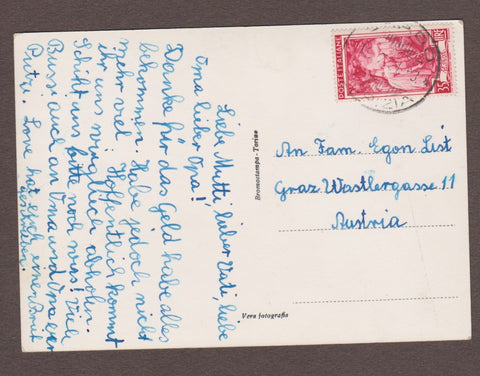 Liebe Mutti, lieber Vati, liebe
Oma lieber Opa!
Danke für das Geld habe alles
bekommen. Habe jedoch nicht
mehr viel. Hoffentlich kommt
ihr uns möglich abholen.
Schikt uns bitte noch was! Viele
Bussi auch an Oma und Opa
Putzi. Love hat euch
geschrieben.
POSTE ITALIANE
LIRE
35
Bromostampa - Torino
An Fam. Egon List
Graz Wastlergasse 11
Austria
Vera fotografia